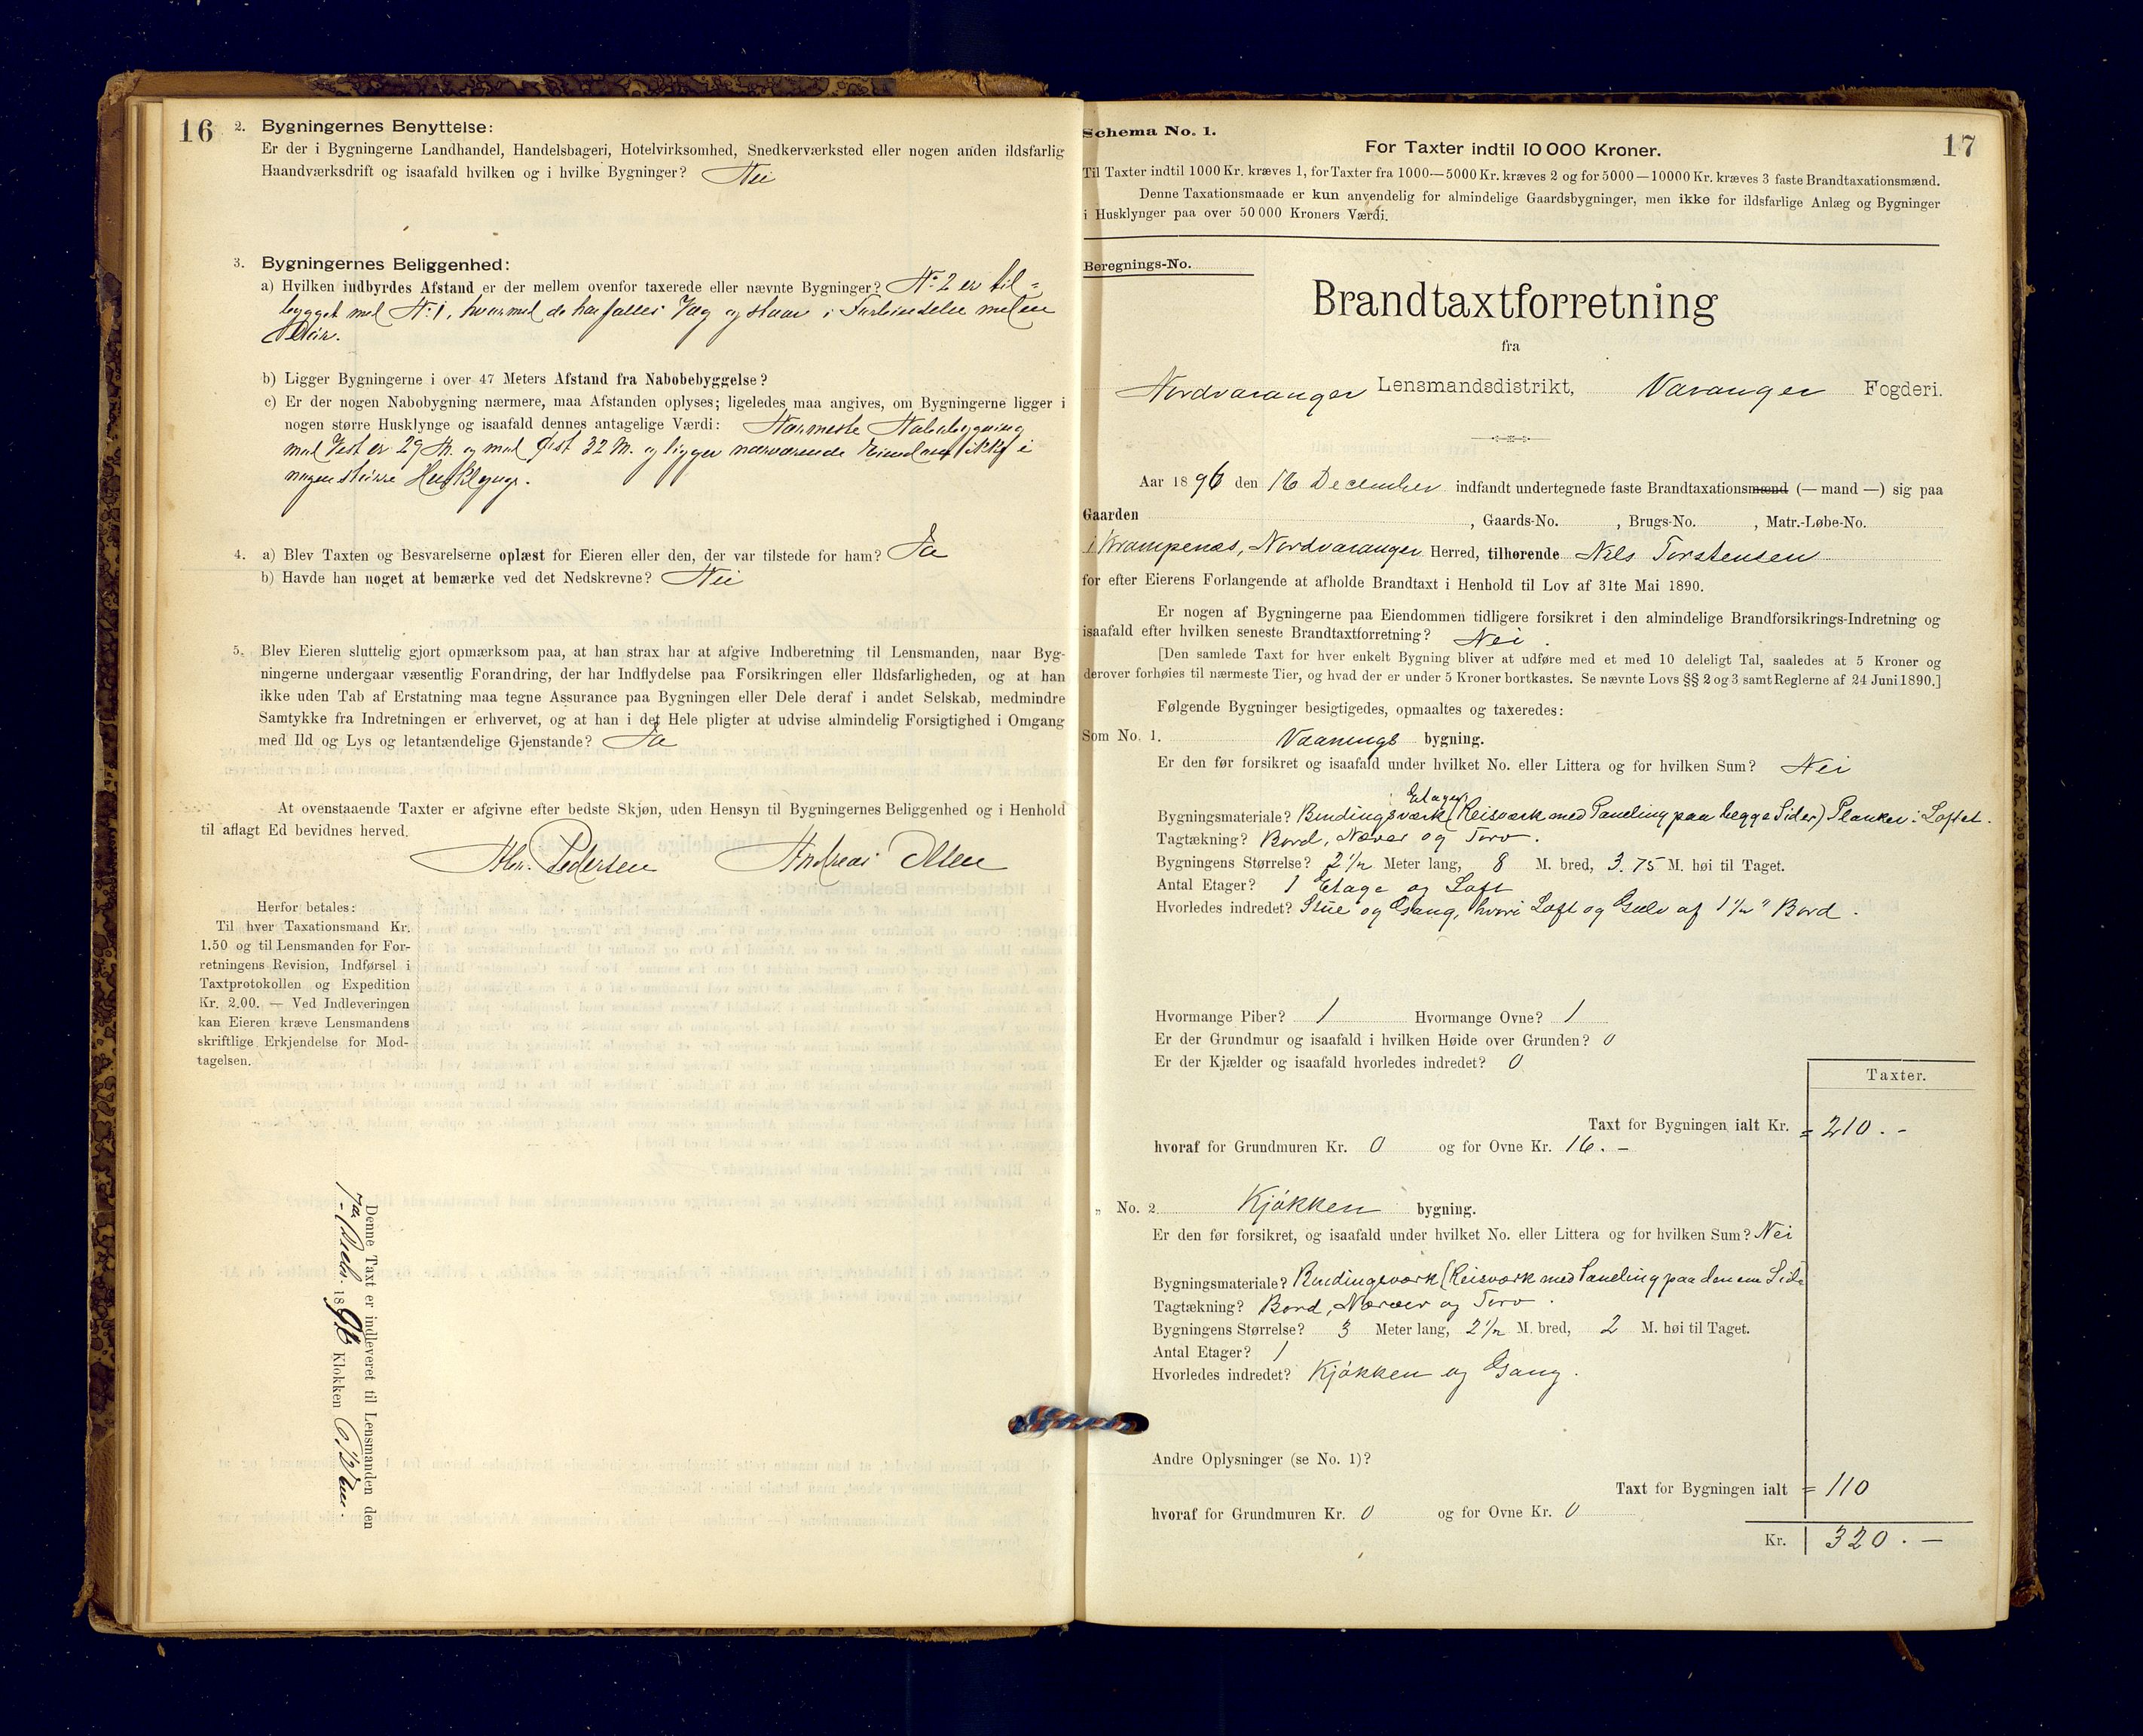 16
2. Bygningernes Benyttelse:
Er der i Bygningerne Landhandel, Handelsbageri, Hotelvirksomhed, Snedkerværksted eller nogen anden ildsfarlig
Haandværksdrift og isaafald hvilken og i hvilke Bygninger? Nei
3. Bygningernes Beliggenhed:
a) Hvilken indbyrdes Afstand er der mellem ovenfor taxerede eller nævnte Bygninger? No 2 er til=
bygget med No 1, hvormed de har fælles Væg og staar i Forbindelse med en
Dør.
b) Ligger Bygningerne i over 47 Meters Afstand fra Nabobebyggelse?
c) Er der nogen Nabobygning nærmere, maa Afstanden oplyses; ligeledes maa angives, om Bygningerne ligger i
nogen større Husklynge og isaafald dennes antagelige Værdi: Nærmeste Nabobygning
mod Vest er 29 M. og mod Øst 32 M. og ligger nærværende Eiendom ikke i
nogen større Husklynge.
4. a) Blev Taxten og Besvarelserne oplæst for Eieren eller den, der var tilstede for ham? Ja
b) Havde han noget at bemærke ved det Nedskrevne? Nei
5. Blev Eieren sluttelig gjort opmærksom paa, at han strax har at afgive Indberetning til Lensmanden, naar Byg-
ningerne undergaar væsentlig Forandring, der har Indflydelse paa Forsikringen eller Ildsfarligheden, og at han
ikke uden Tab af Erstatning maa tegne Assurance paa Bygningen eller Dele deraf i andet Selskab, medmindre
Samtykke fra Indretningen er erhvervet, og at han i det Hele pligter at udvise almindelig Forsigtighed i Omgang
med Ild og Lys og letantændelige Gjenstande? Ja
At ovenstaaende Taxter er afgivne efter bedste Skjøn, uden Hensyn til Bygningernes Beliggenhed og i Henhold
til aflagt Ed bevidnes herved.
Pedersen Andreas Olsen
Herfor betales:
Til hver Taxationsmand Kr.
1.50 og til Lensmanden for For-
retningens Revision, Indførsel i
Taxtprotokollen og Expedition
Kr. 2.00. — Ved Indleveringen
kan Eieren kræve Lensmandens
skriftlige Erkjendelse for Mod-
tagelsen.
Denne Taxt er indleveret til Lensmanden den
1896 Klokken
Schema No. 1.
17
For Taxter indtil 10 000 Kroner.
Til Taxter indtil 1000 Kr. kræves 1, for Taxter fra 1000—5000 Kr. kræves 2 og for 5000—10000 Kr. kræves 3 faste Brandtaxationsmænd.
Denne Taxationsmaade er kun anvendelig for almindelige Gaardsbygninger, men ikke for ildsfarlige Anlæg og Bygninger
i Husklynger paa over 50 000 Kroners Værdi.
Beregnings-No.
Brandtaxtforretning
fra
Nordvaranger Lensmandsdistrikt, Varanger Fogderi.
Aar 1896 den 16 December indfandt undertegnede faste Brandtaxationsmænd (— mand —) sig paa
Gaarden , Gaards-No. , Brugs-No. , Matr.-Løbe-No.
i Krampenæs, Nordvaranger Herred, tilhørende Nils Torstensen
for efter Eierens Forlangende at afholde Brandtaxt i Henhold til Lov af 31te Mai 1890.
Er nogen af Bygningerne paa Eiendommen tidligere forsikret i den almindelige Brandforsikrings-Indretning og
isaafald efter hvilken seneste Brandtaxtforretning? Nei.
[Den samlede Taxt for hver enkelt Bygning bliver at udføre med et med 10 deleligt Tal, saaledes at 5 Kroner og
derover forhøies til nærmeste Tier, og hvad der er under 5 Kroner bortkastes. Se nævnte Lovs §§ 2 og 3 samt Reglerne af 24 Juni 1890.]
Følgende Bygninger besigtigedes, opmaaltes og taxeredes:
Som No. 1. Vaanings bygning.
Er den før forsikret og isaafald under hvilket No. eller Littera og for hvilken Sum? Nei
Etagen
Bygningsmateriale? Bindingsværk (Reisværk med Paneling paa begge Sider) Planker i Loftet.
Tagtækning? Bord, Næver og Torv.
Bygningens Størrelse? 2 1/2 Meter lang, 8 M. bred, 3.75 M. høi til Taget.
Antal Etager? 1 Etage og Loft
Hvorledes indredet? Stue og Gang, hvori Loft og Gulv af 1 1/2" Bord.
Hvormange Piber? 1 Hvormange Ovne? 1
Er der Grundmur og isaafald i hvilken Høide over Grunden? 0
Er der Kjælder og isaafald hvorledes indredet? 0
Taxter.
Taxt for Bygningen ialt Kr. = 210.-
hvoraf for Grundmuren Kr. 0 og for Ovne Kr. 16.-
„ No. 2 Kjøkken bygning.
Er den før forsikret, og isaafald under hvilket No. eller Littera og for hvilken Sum? Nei
Bygningsmateriale? Bindingsværk (Reisværk med Paneling paa den ene Side
Tagtækning? Bord, Næver og Torv.
Bygningens Størrelse? 3 Meter lang, 2 1/2 M. bred, 2 M. høi til Taget.
Antal Etager? 1
Hvorledes indredet? Kjøkken og Gang.
Andre Oplysninger (se No. 1)?
Taxt for Bygningen ialt = 110
hvoraf for Grundmuren Kr. 0 og for Ovne Kr. 0
Kr. 320.-